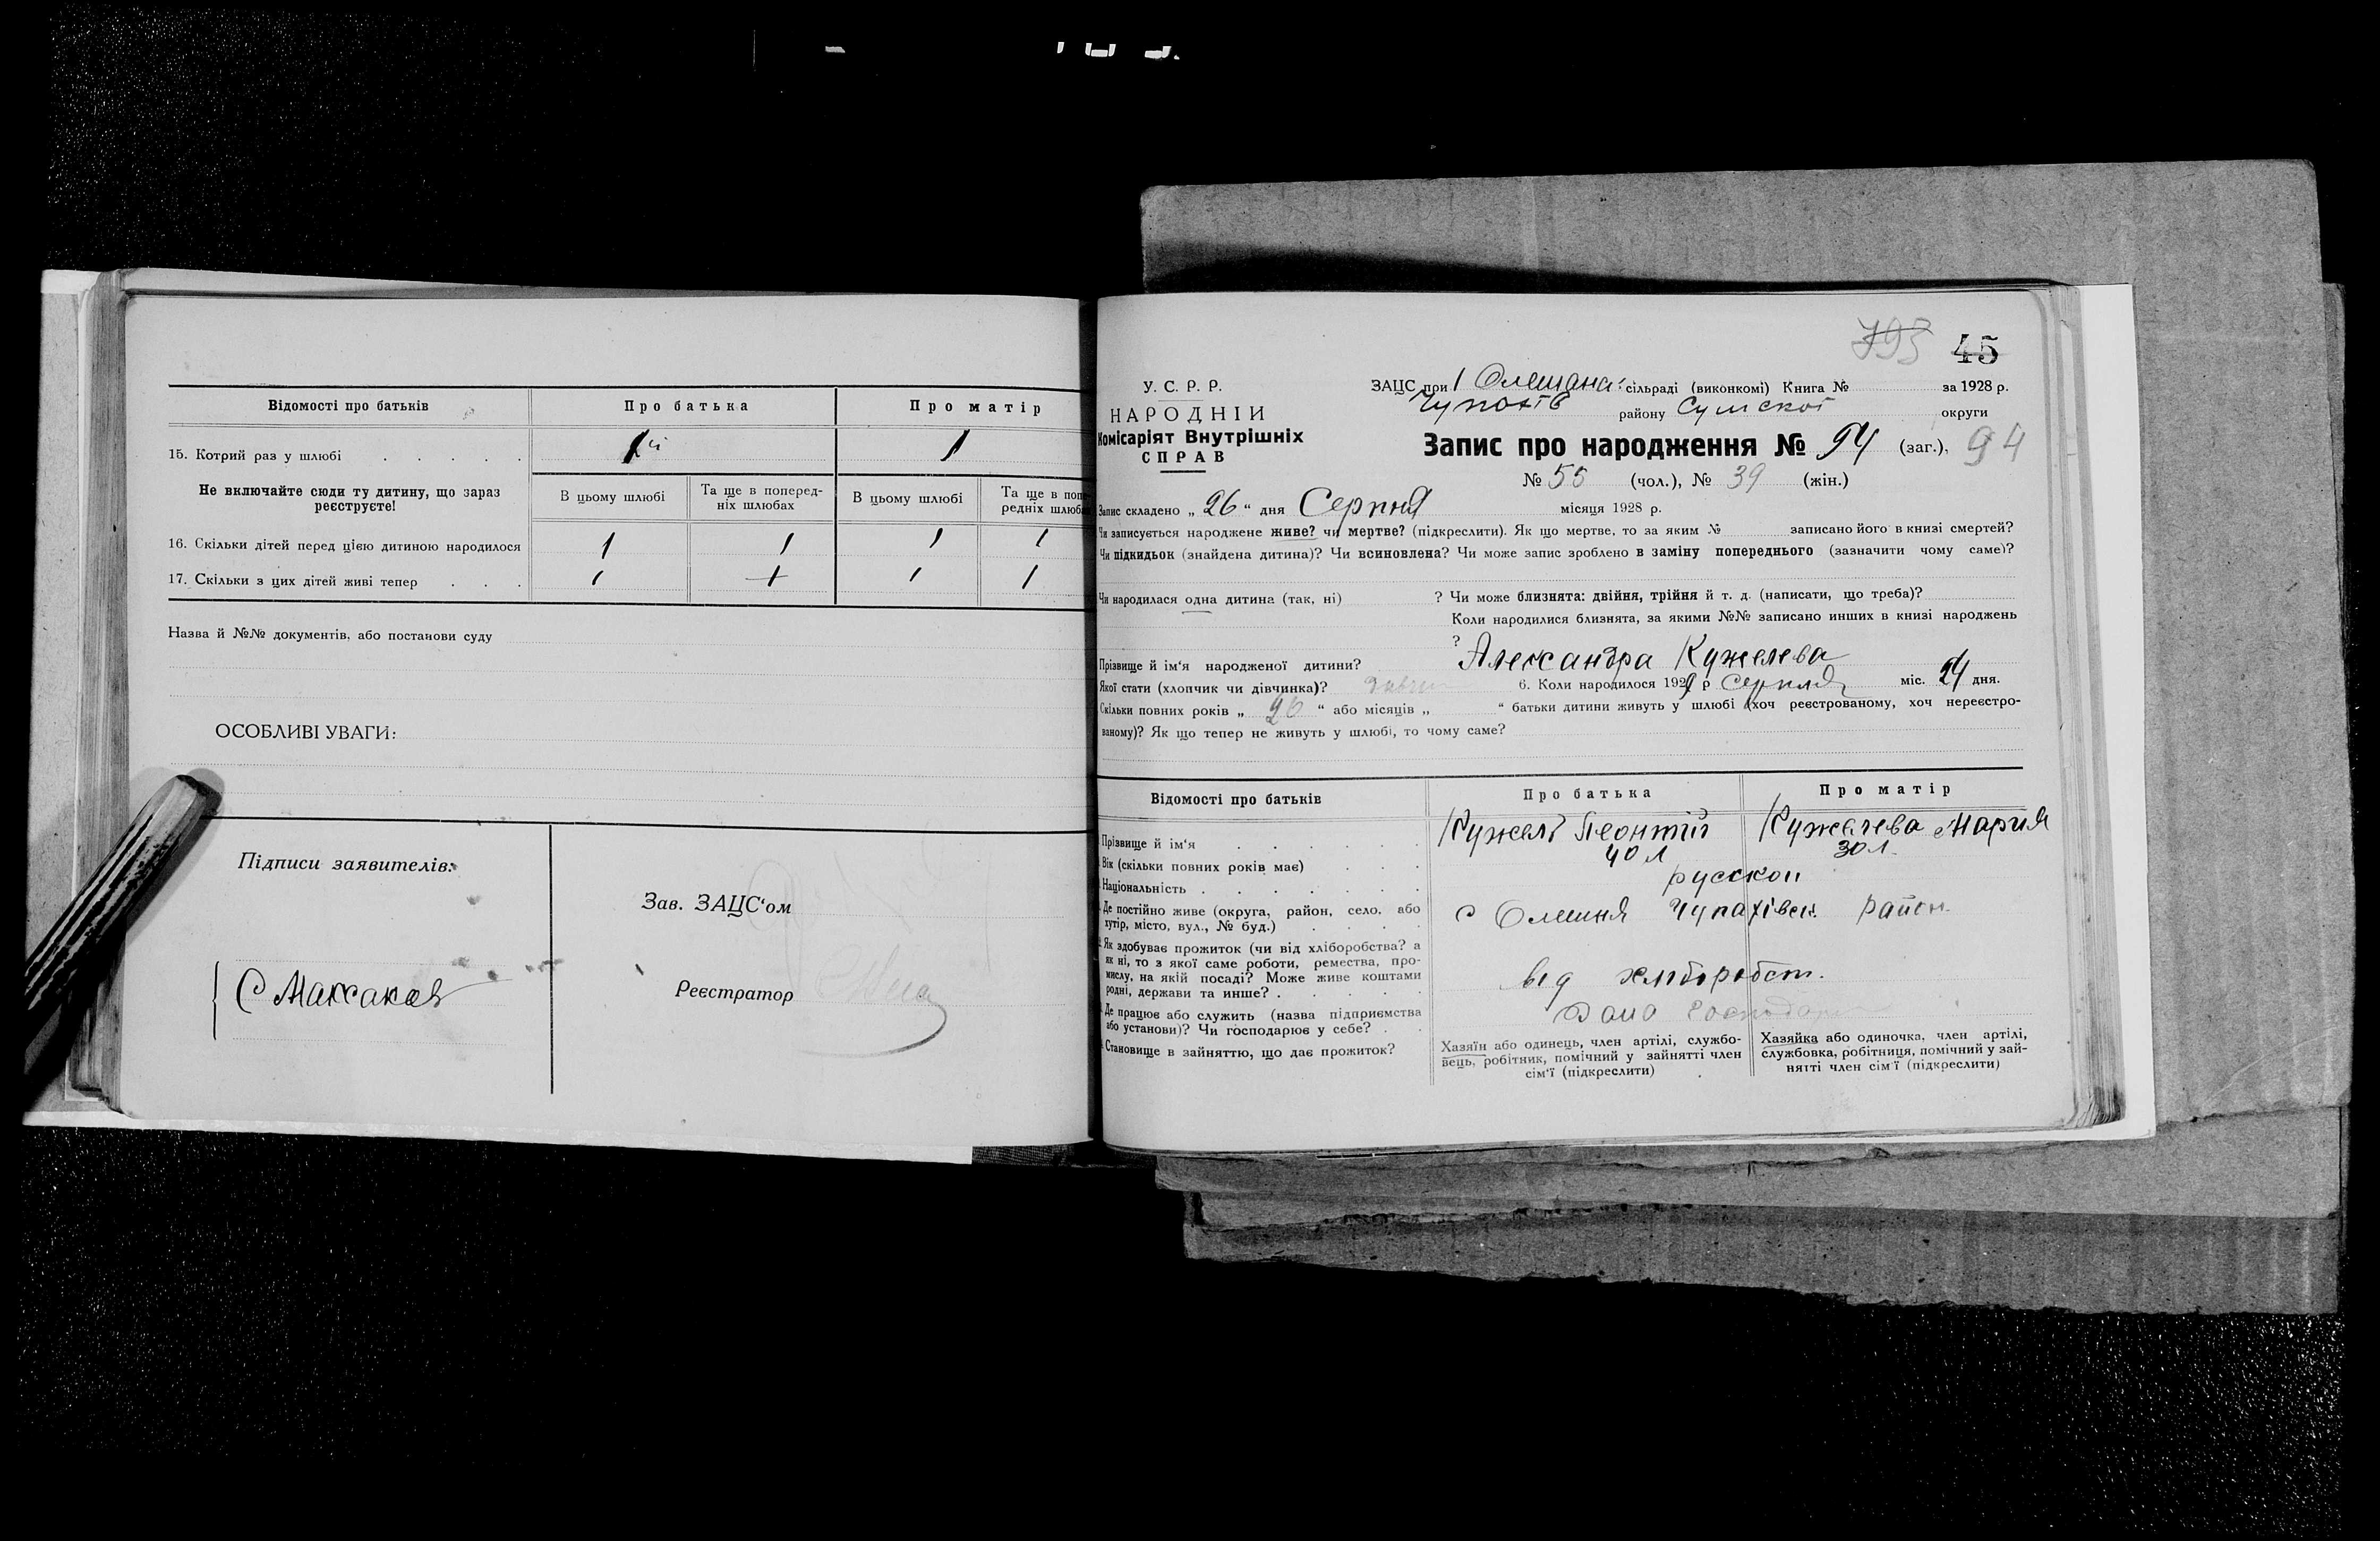 Відомості про батьків
Про батька
Про матір
15. Котрий раз у шлюбі . . . . .
1
Не включайте сюди ту дитину, що зараз
реєструєте!
В цьому шлюбі
Та ще в поперед-
ніх шлюбах
В цьому шлюбі
Та ще в поп
редніх шлюб
16. Скільки дітей перед цією дитиною народилося
1 1 1 1
17. Скільки з цих дітей живі тепер . . .
1 1 1
Назва й №№ документів, або постанови суду
ОСОБЛИВІ УВАГИ:
Підписи заявителів:
С Максаков
Зав. ЗАЦС'ом
Реєстратор
793 45
У. С. Р. Р.
НАРОДНІЙ
Комісаріят Внутрішніх
СПРАВ
ЗАЦС при Олешана сільраді (виконкомі) Книга № за 1928 р.
Чупахів району Сумскої округи
Запис про народження № 94 (заг.), 94
№ 55 (чол.), № 39 (жін.)
Запис складено „ 26 “ дня Серпня місяця 1928 р.
Чи записується народжене живе? чи мертве? (підкреслити). Як що мертве, то за яким № записано його в книзі смертей?
Чи підкидьок (знайдена дитина)? Чи всиновлена? Чи може запис зроблено в заміну попереднього (зазначити чому саме)?
Чи народилася одна дитина (так, ні) ? Чи може близнята: двійня, трійня й т. д. (написати, що треба)?
Коли народилися близнята, за якими №№ записано инших в книзі народжень
?
Прізвище й ім'я народженої дитини? Александра Кужелева
Якої стати (хлопчик чи дівчинка)? 6. Коли народилося 192 р Серпля міс. 24 дня.
Скільки повних років „ 26 “ або місяців „ “ батьки дитини живуть у шлюбі (хоч реєстрованому, хоч нереєстро-
ваному)? Як що тепер не живуть у шлюбі, то чому саме?
Відомості про батьків
Про батька
Про матір
Прізвище й ім'я . . . . . Кужель Леонтій Кужелева Мария
Вік (скільки повних років має) . . . 40 л 30 л
Національність . . . . . . . русской
Де постійно живе (округа, район, село, або
хутір, місто, вул., № буд.) . . . .
с Олешня Чупахівск. район.
Як здобуває прожиток (чи від хліборобства? а
як ні, то з якої саме роботи, ремества, про-
мислу, на якій посаді? Може живе коштами
родні, держави та инше? . . . . .
від хліборобст.
Де працює або служить (назва підприємства
або установи)? Чи господарює у себе? . .
Становище в зайняттю, що дає прожиток?
Хазяїн або одинець, член артілі, службо-
вець, робітник, помічний у зайнятті член
сім'ї (підкреслити)
Хазяйка або одиночка, член артілі,
службовка, робітниця, помічний у зай-
нятті член сім'ї (підкреслити)